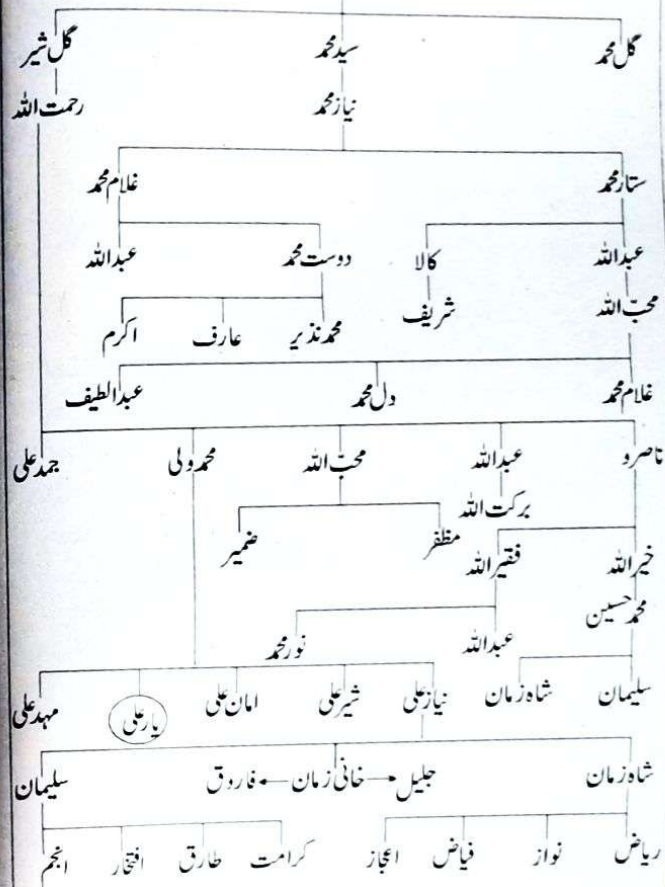 گل محمد سید محمد گل شیر
نیاز محمد رحمت اللہ
ستار محمد غلام محمد
عبداللہ کالا دوست محمد عبداللہ
محبّ اللہ شریف محمد نذیر عارف اکرم
غلام محمد دل محمد عبدالطیف
ناصرو عبداللہ محبّ اللہ محمد ولی جمد علی
برکت اللہ
مظفر ضمیر
خیر اللہ فقیر اللہ
محمد حسین
عبداللہ نور محمد
سلیمان شاہ زمان نیاز علی شیر علی امان علی یار علی مہد علی
شاہ زمان جلیل خانی زمان فاروق سلیمان
ریاض نواز فیاض اعجاز کرامت طارق افتخار انجم